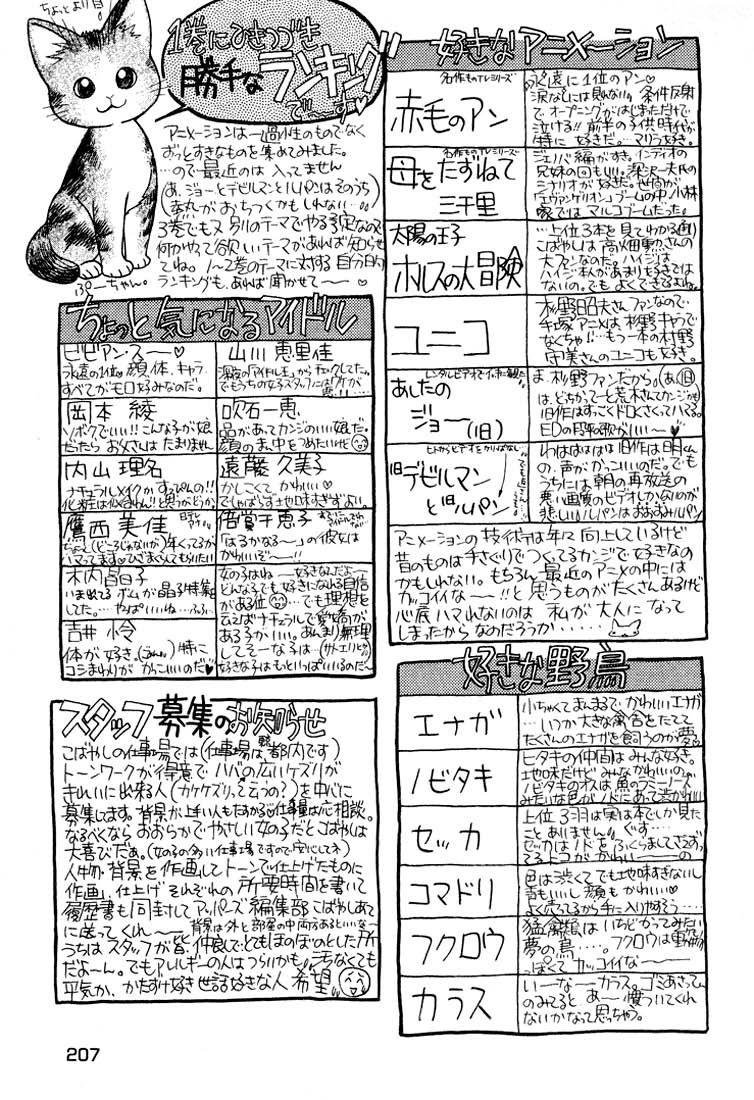 ちょっとより目
1巻にひきつづき
勝手な
ランキング
で〜す♡
アニメーションは一過性のものでなく
ずっとすきなものを集めてみました。
…ので最近のは入ってません
(あ、ジョーとデビルマンとルパンはそのうち
3巻でもまた別のテーマでやる予定なので
何かやって欲しいテーマがあれば知らせ
てね。1〜2巻のテーマに対する自分的
ランキングも、あれば聞かせて〜〜
ぷーちゃん。
ちょっと気になるアイドル
ビビアン・スー♡
永遠の1位。顔、体、キャラ
すべてがモロ好みなのだ。
山川恵里佳
岡本 綾
ソボクでいい!!こんな子が娘
だったらお父さんはたまりません
吹石一恵
品があってカンジのいい娘だ。
顔のまん中をつめたいけど
内山理名
ナチュラルメイクか、すっぴんの!!
化粧は似合わん!!と思うがどうか。
遠藤久美子
かしこくて、かわいい♡
でしゃばらず地味すぎずよい。
鷹西美佳
ハマってます♡ひざまくらしてもらいたい
倍賞千恵子
「はるかなる〜」の彼女は
かわいいぞ〜〜!!
木内晶子
いま出てるボムが晶子特集
してた。…やっぱいいね…ふふ…
吉井 怜
体が好き。特に
コシまわりがかっこいいのだ♥
女の子はね……好きなんだ〜
どんな子でも好きになれる自信
がある位…でも理想を
言えばナチュラルで愛嬌が
ある子がいい。あんまり無理
してそーな子は…(サトエリとか)
好きな子はもといっぱいいるのだ〜
スタッフ募集のお知らせ
こばやしの仕事場では(仕事場は都内です)
トーンワークが得意でハバの広いケズリが
きれいに出来る人(カケケズリ、と言うの?)を中心に
募集してます。背景が上手い人もたすかる♡仕事量は応相談。
なるべくなら おおらかでやさしい女の子だとこばやしは
大喜びだぁ。(女の子の多い仕事場ですので安心して下さい)
人物・背景を作画してトーンで仕上げたものに
作画、仕上げそれぞれの所要時間を書いて
履歴書も同封してアッパーズ編集部こばやしあて
に送ってくれ〜〜背景は外と部屋の中両方あるといいな
うちはスタッフが皆、仲良しでとてもほのぼのとした所
だよ〜ん。でもアレルギーの人はつらいかも。汚なくても
平気か、かたずけ好き世話好きな人希望!!
好きなアニメーション
名作ものTVシリーズ
赤毛のアン
永遠に1位のアン♡
涙なしには敗ない。条件反射
で、オープニングがはじまっただけで
泣ける!!前半の子供時代が
特に好きだ。マリラも好き。
名作ものTVシリーズ
母をたずねて
三千里
ジェノバ編がすき。インディオの
兄妹の回もいい。深沢一夫氏の
シナリオが好きだ。世間が
「エヴァンゲリオン」ブームの中小林
家ではマルコブームだった。
太陽の王子
ホルスの大冒険
…上位3本を見てわかる通り
こばやしは高畑勲さんの
大ファンなのだ。ハイジは
ハイジ本人があまり好きでは
ないの。でもよくできてるよね。
ユニコ
杉野昭夫さんファンなので
手塚アニメは、杉野キャラで
なくちゃ!!…もう一本の村野
守美さんのユニコも好き。
あしたの
ジョー(旧)
ま、杉野ファンだから。(あ、旧
は、どっちかて〜と荒木さんてカンジか)
旧作はすごくドロくさくってハマる。
旧デビルマン
と旧ルパン
わはははは旧作は、明くん
の、声がかっこいいのだ。でも
うちには朝の再放送の
悪い画質のビデオしかないのが
悲しい!!ルパンはおおすみルパン
アニメーションの技術は年々向上しているけど
昔のものは手さぐりでつくってるカンジで好きなの
かもしれない。もちろん、最近のアニメの中には
カッコイイな〜〜!!と思うものがたくさんあるけど
心底ハマれないのは 私が大人になって
しまったからなのだろうか・・・・・
好きな野鳥
エナガ
小ちゃくてまんまるで、かわいいエナガ
…いつか大きな禽舎をたてて
たくさんのエナガを飼うのが夢。
ノビタキ
ヒタキの仲間はみんな好き。
地味だけどみんなかわいいの。
ノビタキのオスは魚のラミーノーズ
みたいな色がノドにあって惹かれる
セッカ
上位3羽は実は本でしか見た
ことありません。ぐす…
セッカはノドをふくらましてさえずっ
てるトコがかわい〜〜の
コマドリ
色は渋くてでも地味すぎないし
声もいいし顔もかわいい♡
よく売ってるから手に入りやすそう…
フクロウ
猛禽類はいちどかってみたい
夢の鳥…。フクロウは動物
っぽくてカッコイイな〜〜
カラス
い〜な〜カラス。ゴミあさって
のみてると あ〜懐いてくれ
ないかなって思っちゃう。
207